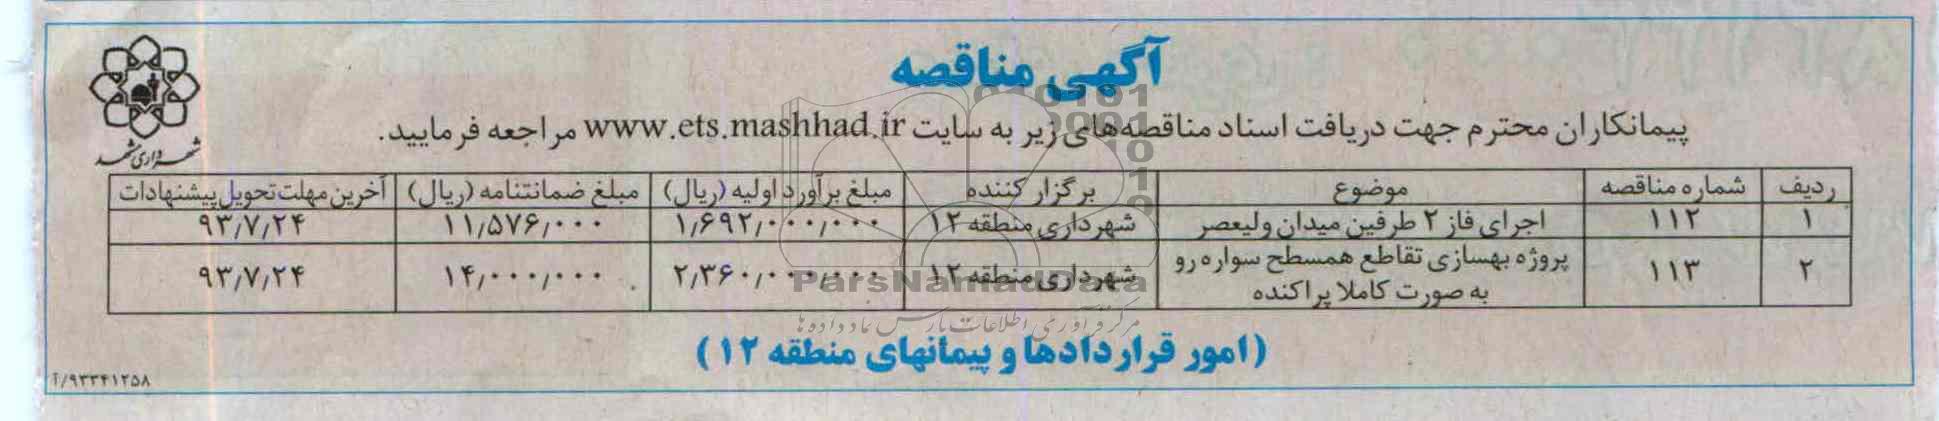 آگهی مناقصه
پیمانکاران محترم جهت دریافت اسناد مناقصه‌های زیر به سایت www.ets.mashhad.ir مراجعه فرمایید.
شهرداری مشهد
ردیف شماره مناقصه موضوع برگزار کننده مبلغ برآورد اولیه (ریال) مبلغ ضمانتنامه (ریال) آخرین مهلت تحویل پیشنهادات
۱ ۱۱۲ اجرای فاز ۲ طرفین میدان ولیعصر شهرداری منطقه ۱۲ ۱٫۶۹۲٫۰۰۰٫۰۰۰ ۱۱٫۵۷۶٫۰۰۰ ۹۳٫۷٫۲۴
۲ ۱۱۳ پروژه بهسازی تقاطع همسطح سواره رو
به صورت کاملا پراکنده شهرداری منطقه ۱۲ ۲٫۳۶۰٫۰۰۰٫۰۰۰ ۱۴٫۰۰۰٫۰۰۰ ۹۳٫۷٫۲۴
ParsNamadData
مرکز فرآوری اطلاعات پارس نماد داده ها
(امور قراردادها و پیمانهای منطقه ۱۲)
۹۳۳۴۱۲۵۸/آ